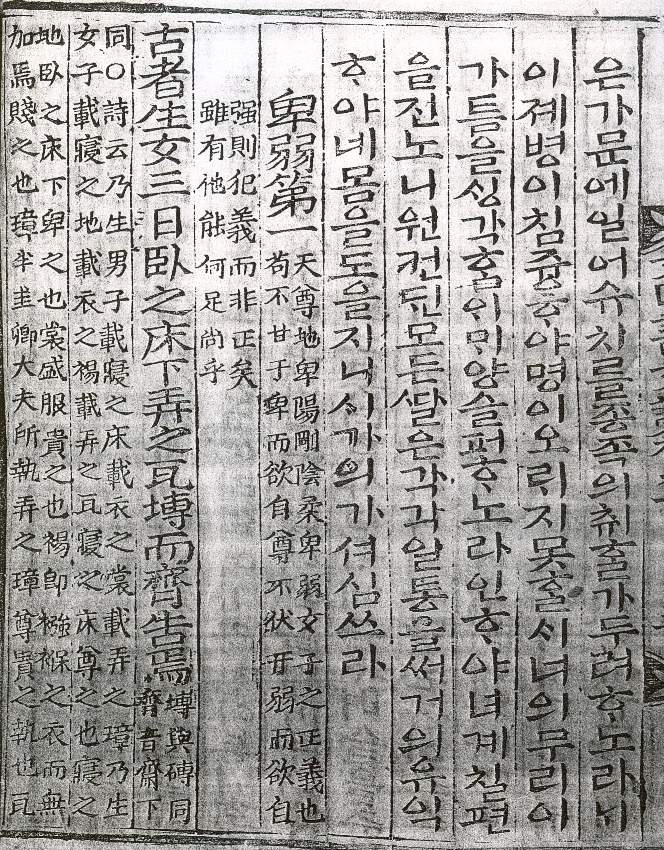 은가문에일어슈치를종족의취홀가두려ᄒᆞ노라ᄂᆡ
이졔병이침즁ᄒᆞ야명이오ᄅᆡ지못홀시너의무리이
가틀을싱각홈이ᄆᆡ양슬퍼ᄒᆞ노라인ᄒᆞ야녀계칠편
을진노니원컨ᄃᆡᆫ모든ᄯᆞᆯ은각각일통을써거의유익
ᄒᆞ야네몸을도을지니시가의가셔심쓰라
卑弱第一
天尊地卑陽剛陰柔卑弱女子之正義也
苟不甘于卑而欲自尊不伏于弱而欲自
强則犯義而非正矣
雖有他能何足尚乎
古者生女三日臥之床下弄之瓦塼而齊告焉
塼與磚同
齊音齋下
同○詩云乃生男子載寢之床載衣之裳載弄之璋乃生
女子載寢之地載衣之裼載弄之瓦寢之床尊之也寢之
地臥之床下卑之也裳盛服貴之也裼卽襁褓之衣而無
加焉賤之也璋半圭卿大夫所執弄之璋尊貴之執也瓦